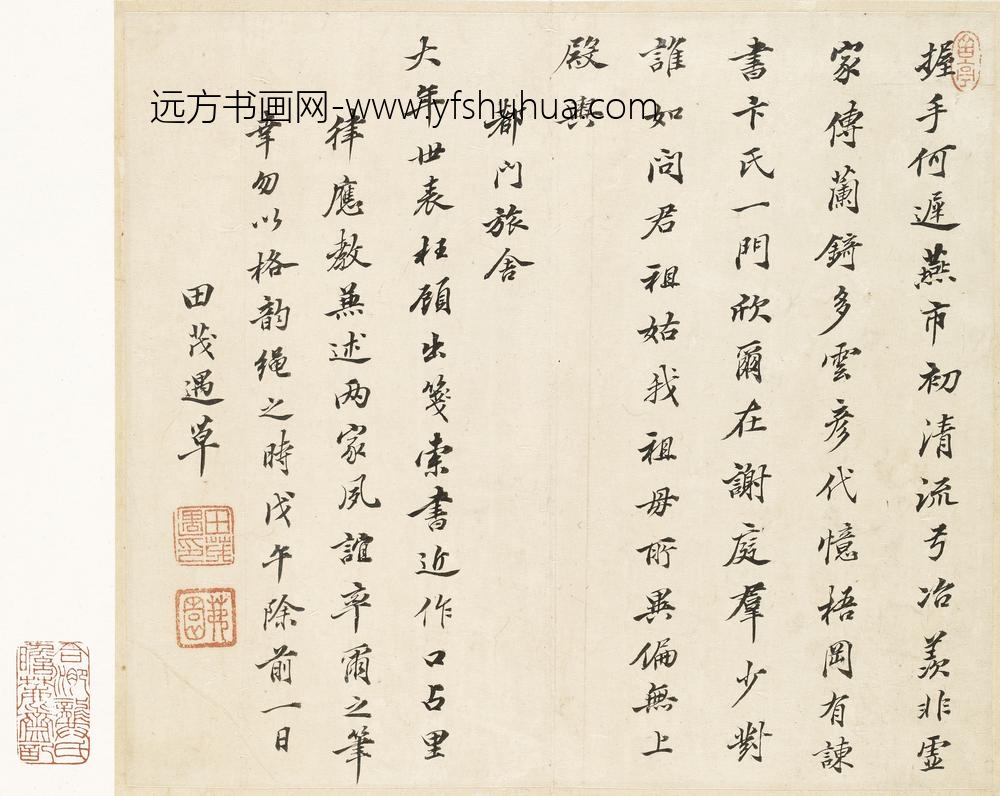 握手何遲燕市初清流弓冶羨非虛
家傳蘭錡多雲彥代憶梧岡有諫
書卞氏一門欣爾在謝庭羣少對
誰如問君祖姑我祖母所異偏無上
殿輿
都門旅舍
大年世表枉顧出箋索書近作口占里
律應教兼述两家夙誼卒爾之筆
幸勿以格韵繩之時戊午除前一日
田茂遇草
田茂遇印
远方书画网-www.yfshuhua.com